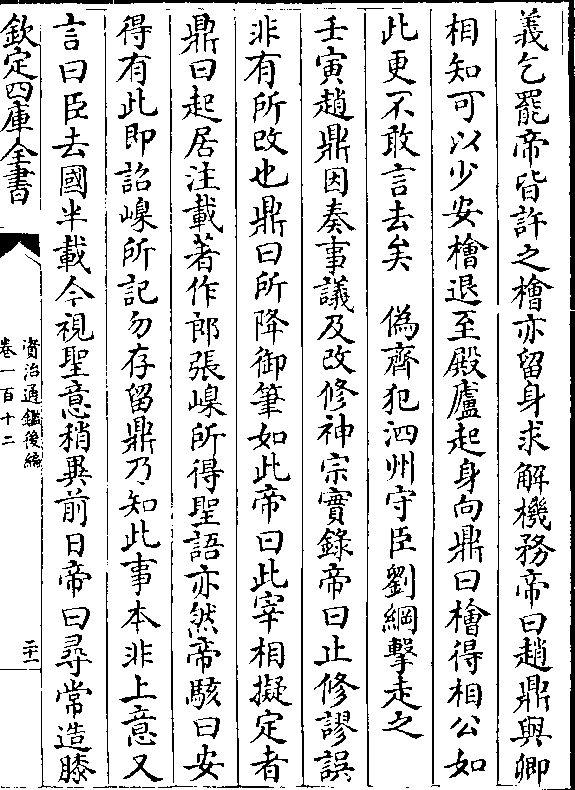 義乞罷帝皆許之檜亦留身求解機務帝曰趙鼎與卿
相知可以少安檜退至殿廬起身向鼎曰檜得相公如
此更不敢言去矣　偽齊犯泗州守臣劉綱擊走之
壬寅趙鼎因奏事議及改修神宗實錄帝曰止修謬誤
非有所改也鼎曰所降御筆如此帝曰此宰相擬定者
鼎曰起居注載著作郎張嵲所得聖語亦然帝駭曰安
得有此即詔嵲所記勿存留鼎乃知此事本非上意又
言曰臣去國半載今視聖意稍異前日帝曰尋常造膝
欽定四庫全書
資治通鑑後編
卷一百十二
二十一